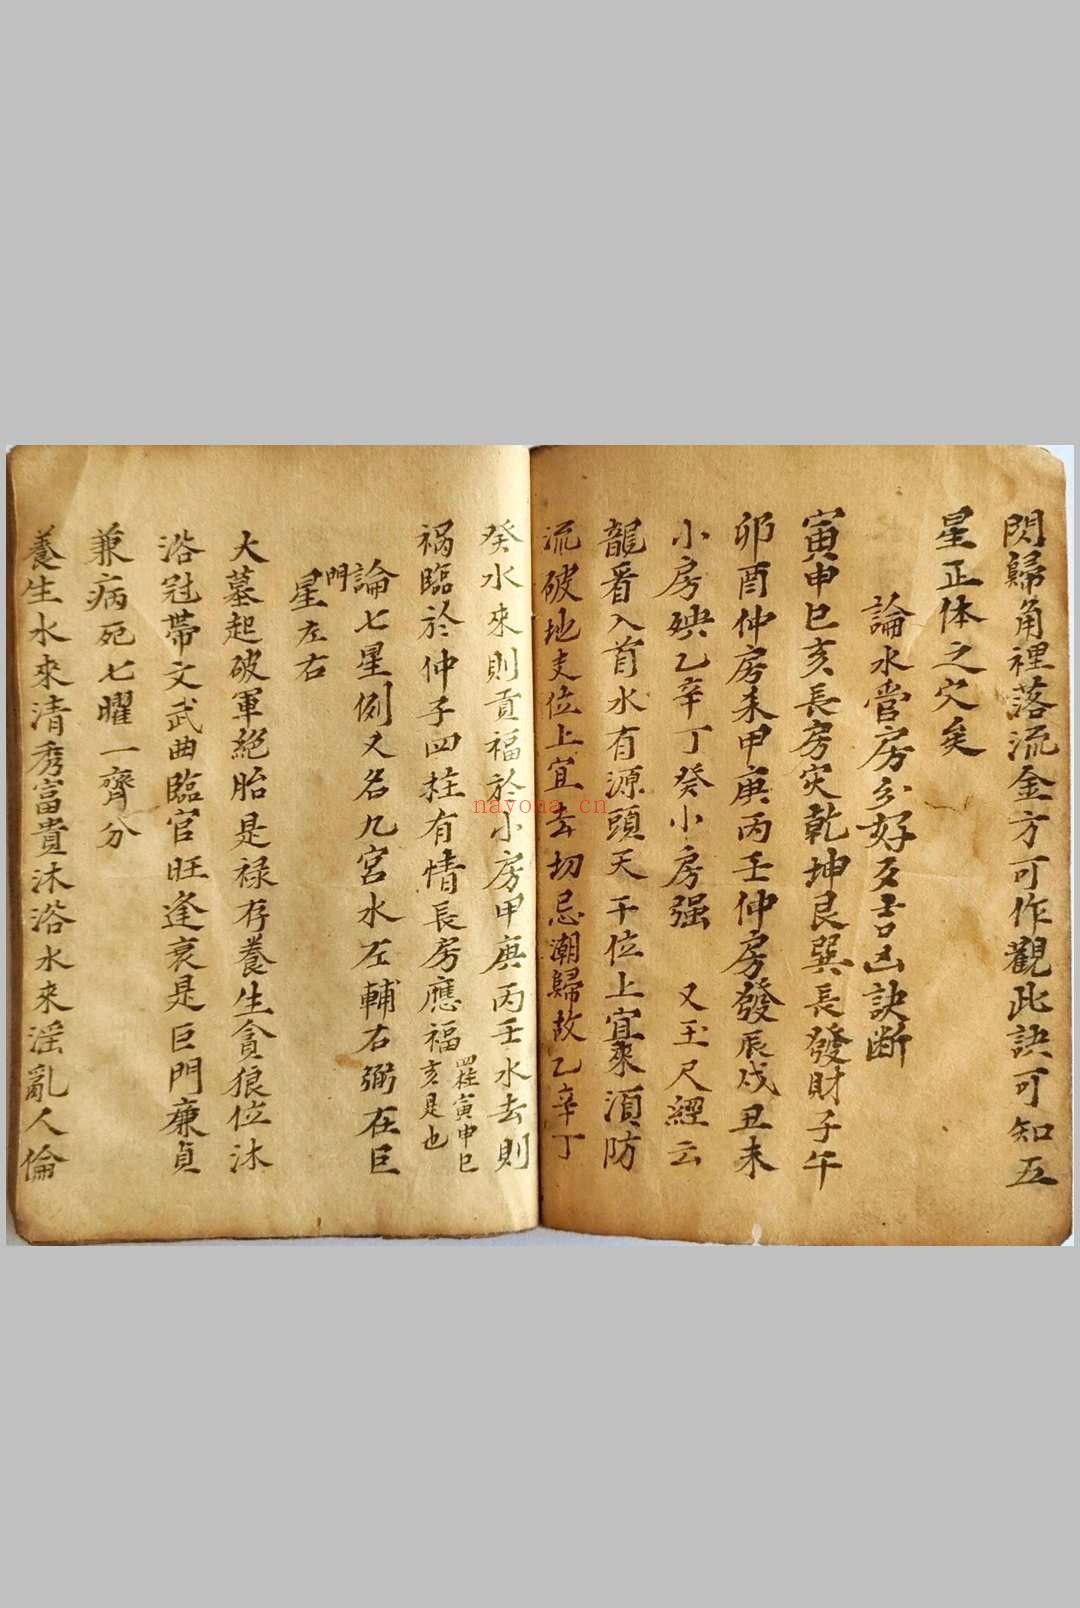 閃歸角裡落流金方可作觀此訣可知五
星正体之穴矣
論水當房分好歹吉凶訣断
寅申巳亥長房灾乾坤艮巽長發財子午
卯酉仲房來甲庚丙壬仲房發辰戌丑未
小房殃乙辛丁癸小房强 又玉尺經云
龍看入首水有源頭天干位上宜來湏防
流破地支位上宜去切忌潮歸故乙辛丁
癸水來則貢福於小房甲庚丙壬水去則
禍臨於仲子四柱有情長房應福四柱寅申巳亥是也
論七星例又名九宮水左輔右弼在巨
門星左右
大墓起破軍絕胎是禄存養生貪狼位沐
浴冠帶文武曲臨官旺逢衰是巨門廉貞
兼病死七曜一齊分
養生水來清秀富貴沐浴水來淫亂人倫
nayona.cn